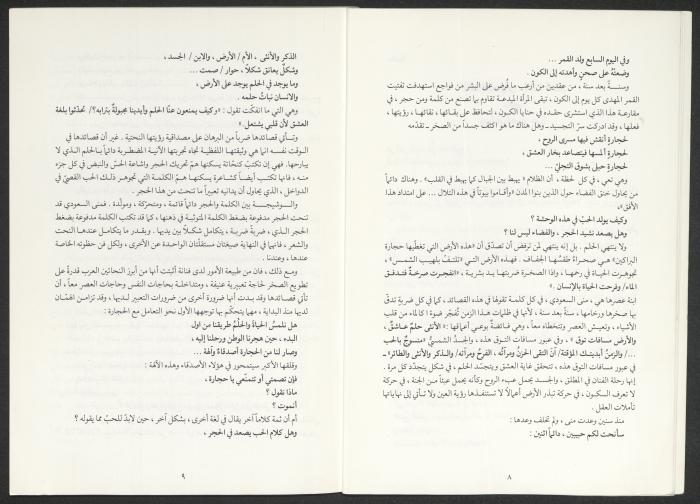 وفي اليوم السابع ولد القمر ...
وضعتهُ على صحنٍ وأهدته إلى الكون .
وسنـــةً بعد سنة ، من عقدين من أرعب ما فُرض على البشر من فواجع استهدفت تفتيت
القمر المهدى كل يوم إلى الكون ، تبقى المرأة المبدعة تقاوم بها تصنع من كلمة ومن حجر ، في
مقارعة هذا الذي استشرى حقده في حنايا الكون ، لتحافظ على بقائها ، نقائها ، رؤيتها ،
فعلها ، وقد ادركت سرّ التجسيد ــ وهل هناك ما هو اكثف جسداً من الصخر ــ تقدّمه
لحجارة أنقش فيها مسرى الروح ،
لحجارة ألمسها فيتصاعد بخار العشق ،
لحجارة حبلى بشوق التجليّ ...
وهي تعي ، في كل لحظة ، أن الظلام « يهبط بين الجبال كما يهبط في القلب » . وهناك دائماً
من يحاول خنق الفضاء حول الذين بنوا المدن «وأقاموا بيوتاً في هذه التلال ... على امتداد هذا
الأفق» ،
وكيف يولد الحبّ في هذه الوحشة ؟
وهل يصعد نشيد الحجر ، والفضاء ليس لنا ؟
ولا ينتهي الحلم . بل إنه ينتهي لمن ترفض أن تصدّق أن «هذه الأرض التي تغطّيها حجارة
البراكين» هي صحراءُ طقسُها الجفاف . فهذه الأرض التي «تلتفّ بلهيب الشمس» ،
تجوهرت الحياة في رحمها ، واذا الصخرة ضربتها يد بشرية ، «انفجرت صرخةً فتدفق
الماء/ وفرحت الحياة بالإنسان .»
ابنة عصرها هي ، منى السعودي ، في كل كلمة تقولها في هذه القصائد ، كما في كل ضربةٍ تدقّ
بها صخرها ورخامها ، سنةً بعد سنة ، لأنها في ظلمات هذا الزمن تُفجّر ضوءا كالماء من قلب
الأشياء ، وتعيش العصر وتتخطاه معاً ، وهي غائصةٌ بوعيٍ أعماقها : «الأنثى حلمٌ عاشقٌ ،
والأرض مسافات توق» ، وفي عبور مسافات التوق هذه ، والجسدُ الشمسيُّ «منسوجٌ بالحب
.../ والزمنُ أبديتك المؤقتة/ أنّ التقى الحزنُ ومرآتُه ، الفرحُ ومرآته/ والذكر والأنثى والطائر» ــ
في عبور مسافات التوق هذه ، تتحقق غاية العشق ويتجسّد الحلم ، في شكل يتجدّد كل مرة .
إنها رحلة الفنان في المطلق ، والجسد يحمل عبء الروح وكأنه يحمل عيناً من الجنة ، في حركة
لا تعرف السكون ، في حركة تبذر الأرض أعمالاً لا تستنفدها رؤية العين ولا تأتي إلى نهاياتها
تأملات العقل .
منذ سنين وعدت منى ، ولم تخلف وعدها :
سأنحت لكم حبيبين ، دائماً اثنين :
٨
الذكر والأنثى ، الأم / الأرض ، والابن / الجسد ،
وشكلٌ يعانق شكلاً ، حوار / صمت ...
وما يوجد في الحلم يوجد على الأرض ،
والانسان نباتُ حلمه .
وهي التي ما انفكّت تقول : «وكيف يمنعون عنّا الحلم وأيدينا مجبولةٌ بترابه؟/ تحدّثوا بلغة
العشق لأن قلبي يشتعل .»
وتأتي قصائدها ضرباً من البرهان على مصداقية رؤيتها النحتية . غير أن قصائدها في
الوقت نفسه انما هي وثيقتها اللفظية تجاه تجربتها الآنية المضطربة دائماً بالحلم الذي لا
يبارحها . فهي إن تكتبُ كنحّاتة يسكنها همّ تحريك الحجر واشاعة الحسّ والنبض في كل جزء
منه ، فإنها تكتب أيضاً كشاعرة يسكنها همّ الكلمة التي تجوهر ذلك الحب القصيّ في
الدواخل ، الذي يحاول أن يدانيه تعبيراً ما تنحت من هذا الحجر .
والوشيجة بين الكلمة والحجر دائماً قائمة ، ومتحركة ، ومولّدة . فمنى السعودي قد
تنحت الحجر مدفوعة بضغط الكلمة المتوثبة في ذهنها ، كما قد تكتب الكلمة مدفوعة بضغط
الحجر الذي ، ضربةً ضربة ، يتكامل شكلاً بين يديها . وبقدر ما يتكامل عندها النحت
والشعر ، فإنهما في النهاية صيغتان مستقلّتان الواحدة عن الأخرى ، ولكل فن حظوته الخاصة
عندها ، وعندنا .
ومع ذلك ، فإن من طبيعة الأمور لدى فنانة أثبتت أنها من أبرز النحاتين العرب قدرةً على
تطويع الصخر لحاجة تعبيرية عنيفة ، ومتداخلة بحاجات النفس وحاجات العصر معاً ، أن
تأتي قصائدها وقد بدت أنها ضرورة أخرى من ضرورات التعبير لديها ، وقد تزامن الفنّان
لديها منذ البداية ، مهما يتحكّم بها توجهها الأول نحو التعامل مع الحجارة :
هل نلمسُ الحياةَ والحُلْمُ طريقنا من اول
البدء ، حين هجرنا الوطن ورحلنا إليه ،
وصار لنا من الحجارة أصدقاءٌ وآلهة ...
وقلقها الأكبر سيتمحور في هؤلاء الأصدقاء وهذه الآلهة :
فإن تصمتي أو تتمنّعي يا حجارة ،
ماذا نقول ؟
أنموت ؟
أم أن ثمة كلاماً آخر يقال في لغة أخرى ، بشكل آخر ، حين لابدّ للحبّ مما يقوله ؟
وهل كلام الحب يصعد في الحجر ،
٩